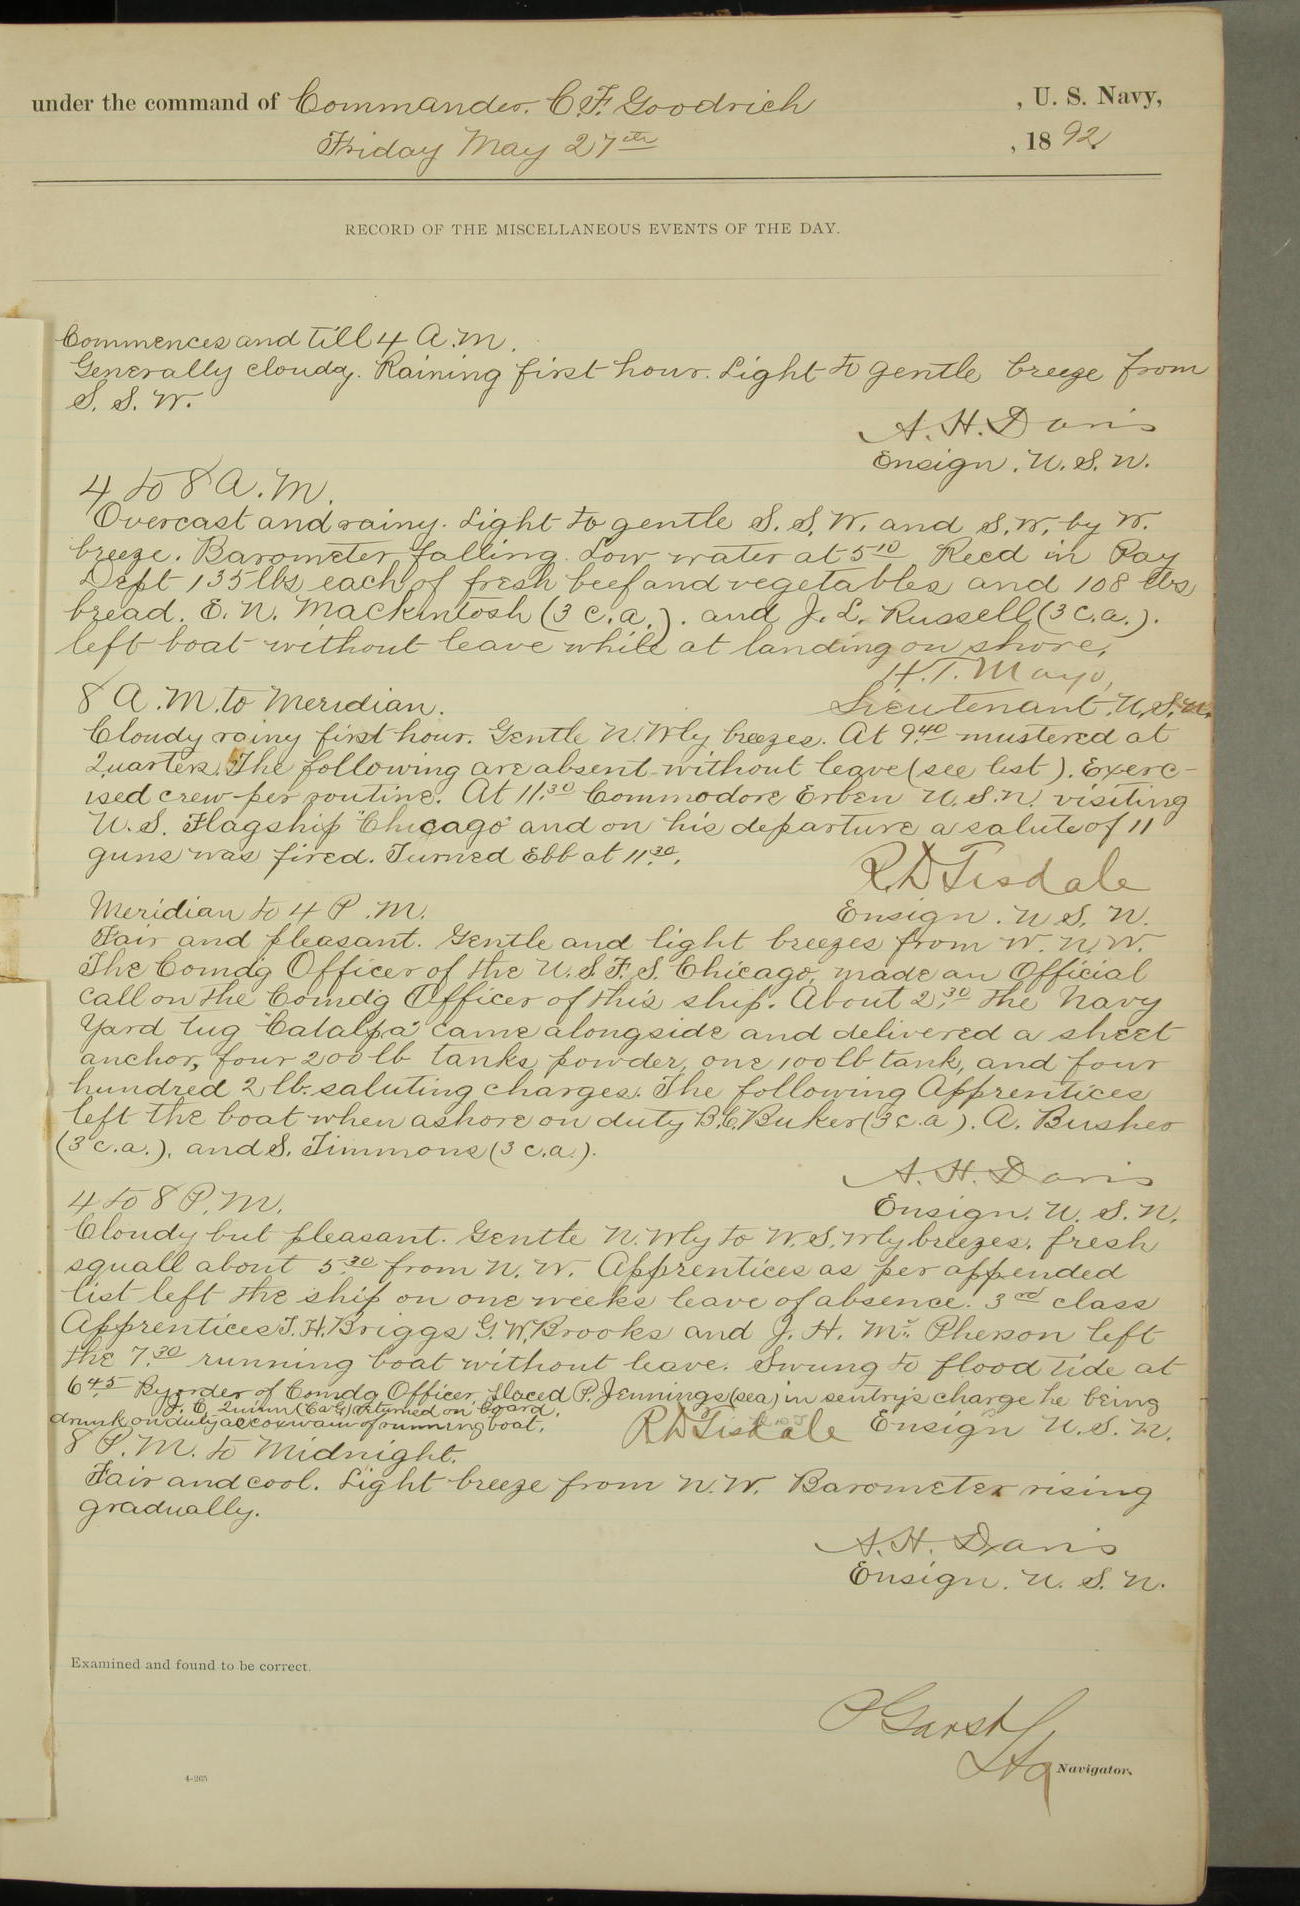 under the command of Commander. C. F. Goodrich , U. S. Navy,
Friday May 27th , 1892
RECORD OF THE MISCELLANEOUS EVENTS OF THE DAY.
Commences and till 4 A.M.
Generally cloudy. Raining first hour. Light to gentle breeze from
S. S. W.
A. H. Davis
Ensign. U. S. N.
4 to 8 A.M.
Overcast and rainy. Light to gentle S. S. W. and S. W. by W.
breeze. Barometer falling. Low water at 5 10 Recd in Pay
Dept 135 lbs each of fresh beef and vegetables and 108 lbs
bread. E. N. Mackintosh (3 c.a.). and J. L. Russell (3 c.a.).
left boat without leave while at landing on shore.
H. T. Mayo,
8 A.M. to Meridian. Lieutenant. U. S. N.
Cloudy rainy first hour. Gentle N. Wly breezes. At 9.40 mustered at
Quarters. The following are absent without leave (see list). Exerc-
ised crew per routine. At 11.30 Commodore Erben U.S.N. visiting
U. S. Flagship "Chicago" and on his departure a salute of 11
guns was fired. Turned Ebb at 11.30.
R D Tisdale
Meridian to 4 P.M. Ensign. U. S. N.
Fair and pleasant. Gentle and light breezes from W. N. W.
The Comdg Officer of the U. S. F. S. Chicago, made an Official
call on the Comdg Officer of this ship. About 2.30 the Navy
Yard tug "Catalpa" came alongside and delivered a sheet
anchor, four 200 lb tanks powder, one 100 lb tank, and four
hundred 2 lb. saluting charges. The following Apprentices
left the boat when ashore on duty B. C. Buker (3 c.a). A. Busher
(3 c.a.). and S. Timmons (3 c.a).
A. H. Davis
4 to 8 P.M. Ensign. U. S. N.
Cloudy but pleasant. Gentle N. Wly to W. S. Wly breezes. fresh
squall about 5.30 from N. W. Apprentices as per appended
list left the ship on one weeks leave of absence. 3rd class
Apprentices T. H. Briggs G. W. Brooks and J. H. Mc Pherson left
the 7.30 running boat without leave. Swung to flood tide at
6 45 By order of Comdg Officer placed P. Jennings (sea) in sentry's charge he being
J. E. Quinn returned on board.
drunk on duty as coxwain of running boat. R D Tisdale Ensign U. S. N.
8 P.M. to Midnight.
Fair and cool. Light breeze from N. W. Barometer rising
gradually.
A. H. Davis
Ensign. U. S. N.
Examined and found to be correct.
P Garst
Lt. Navigator.
4-265